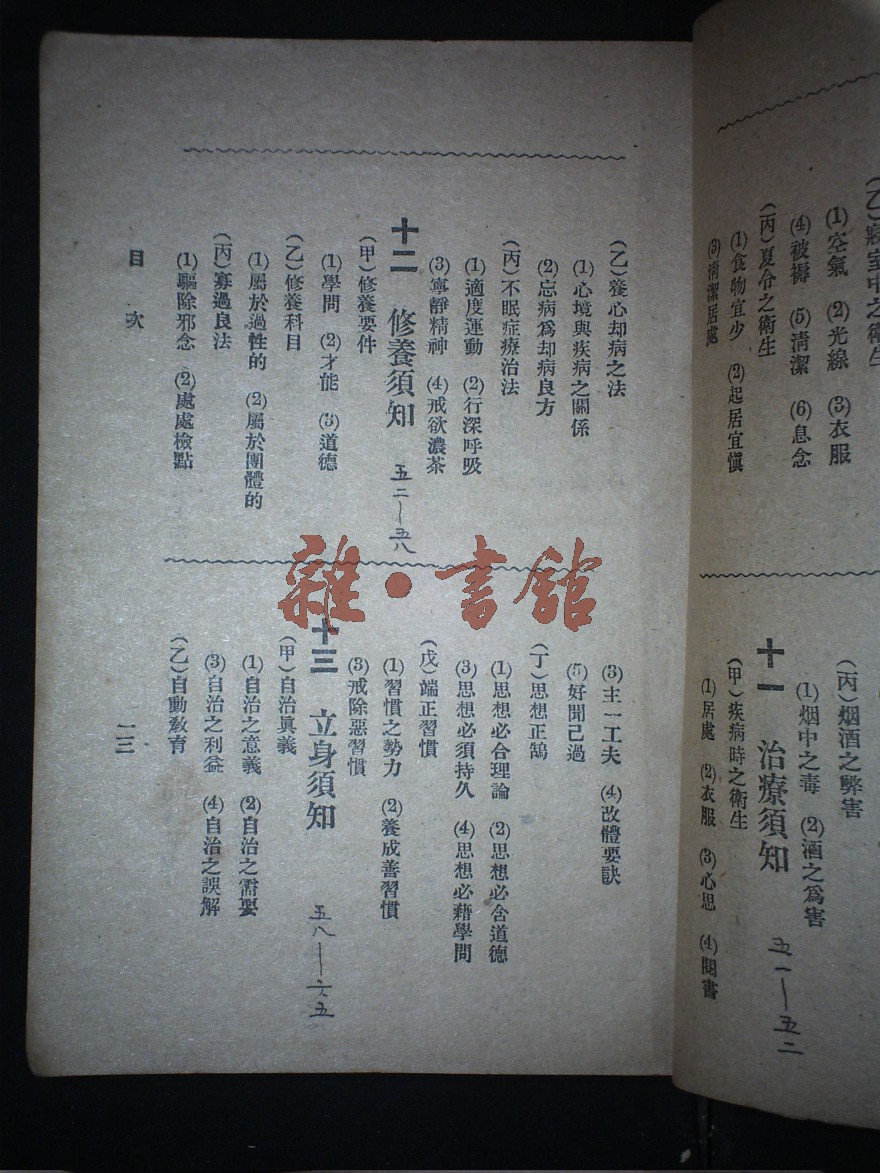 (乙)寢室中之衛生
(1)空氣 (2)光線 (3)衣服
(4)被褥 (5)清潔 (6)息念
(丙)夏令之衛生
(1)食物宜少 (2)起居宜愼
(3)清潔居處
(丙)烟酒之弊害
(1)烟中之毒 (2)酒之爲害
十一 治療須知 五一—五二
(甲)疾病時之衛生
(1)居處 (2)衣服 (3)心思 (4)閱書
(乙)養心却病之法
(1)心境與疾病之關係
(2)忘病爲却病良方
(丙)不眠症療治法
(1)適度運動 (2)行深呼吸
(3)寧靜精神 (4)戒飲濃茶
十二 修養須知 五二—五八
(甲)修養要件
(1)學問 (2)才能 (3)道德
(乙)修養科目
(1)屬於過性的 (2)屬於團體的
(丙)寡過良法
(1)驅除邪念 (2)處處檢點
(3)主一工夫 (4)改體要訣
(5)好聞己過
(丁)思想正鵠
(1)思想必合理論 (2)思想必含道德
(3)思想必須持久 (4)思想必藉學問
(戊)端正習慣
(1)習慣之勢力 (2)養成善習慣
(3)戒除惡習慣
十三 立身須知 五八—六五
(甲)自治眞義
(1)自治之意義 (2)自治之需要
(3)自治之利益 (4)自治之誤解
(乙)自動敎育
目次
一三
雜·書館